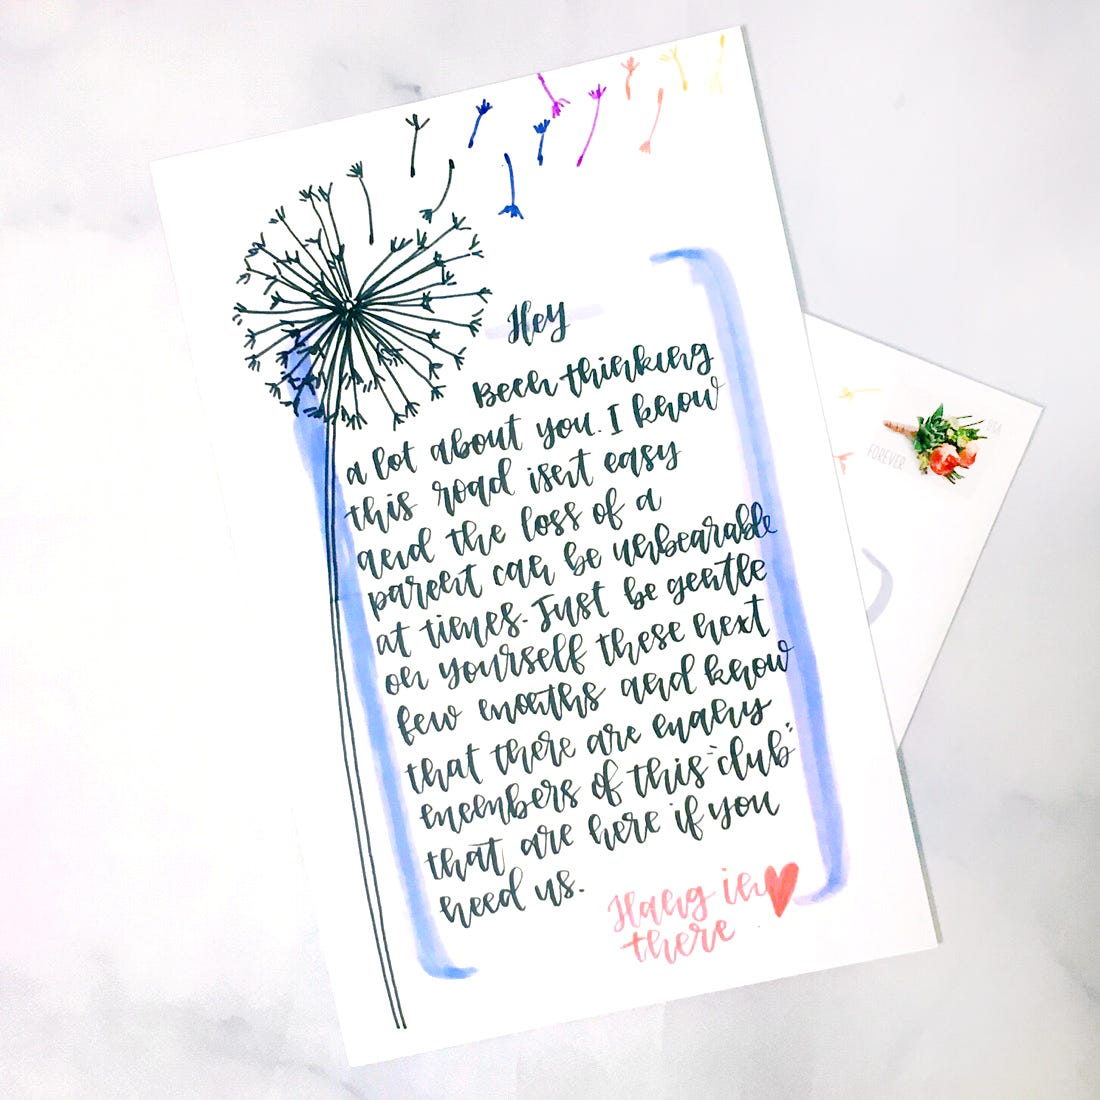 Hey
Been thinking
a lot about you. I know
this road isn't easy
and the loss of a
parent can be unbearable
at times. Just be gentle
on yourself these next
few months and know
that there are many
members of this "club"
that are here if you
need us.
Hang in
there
FOREVER
USA